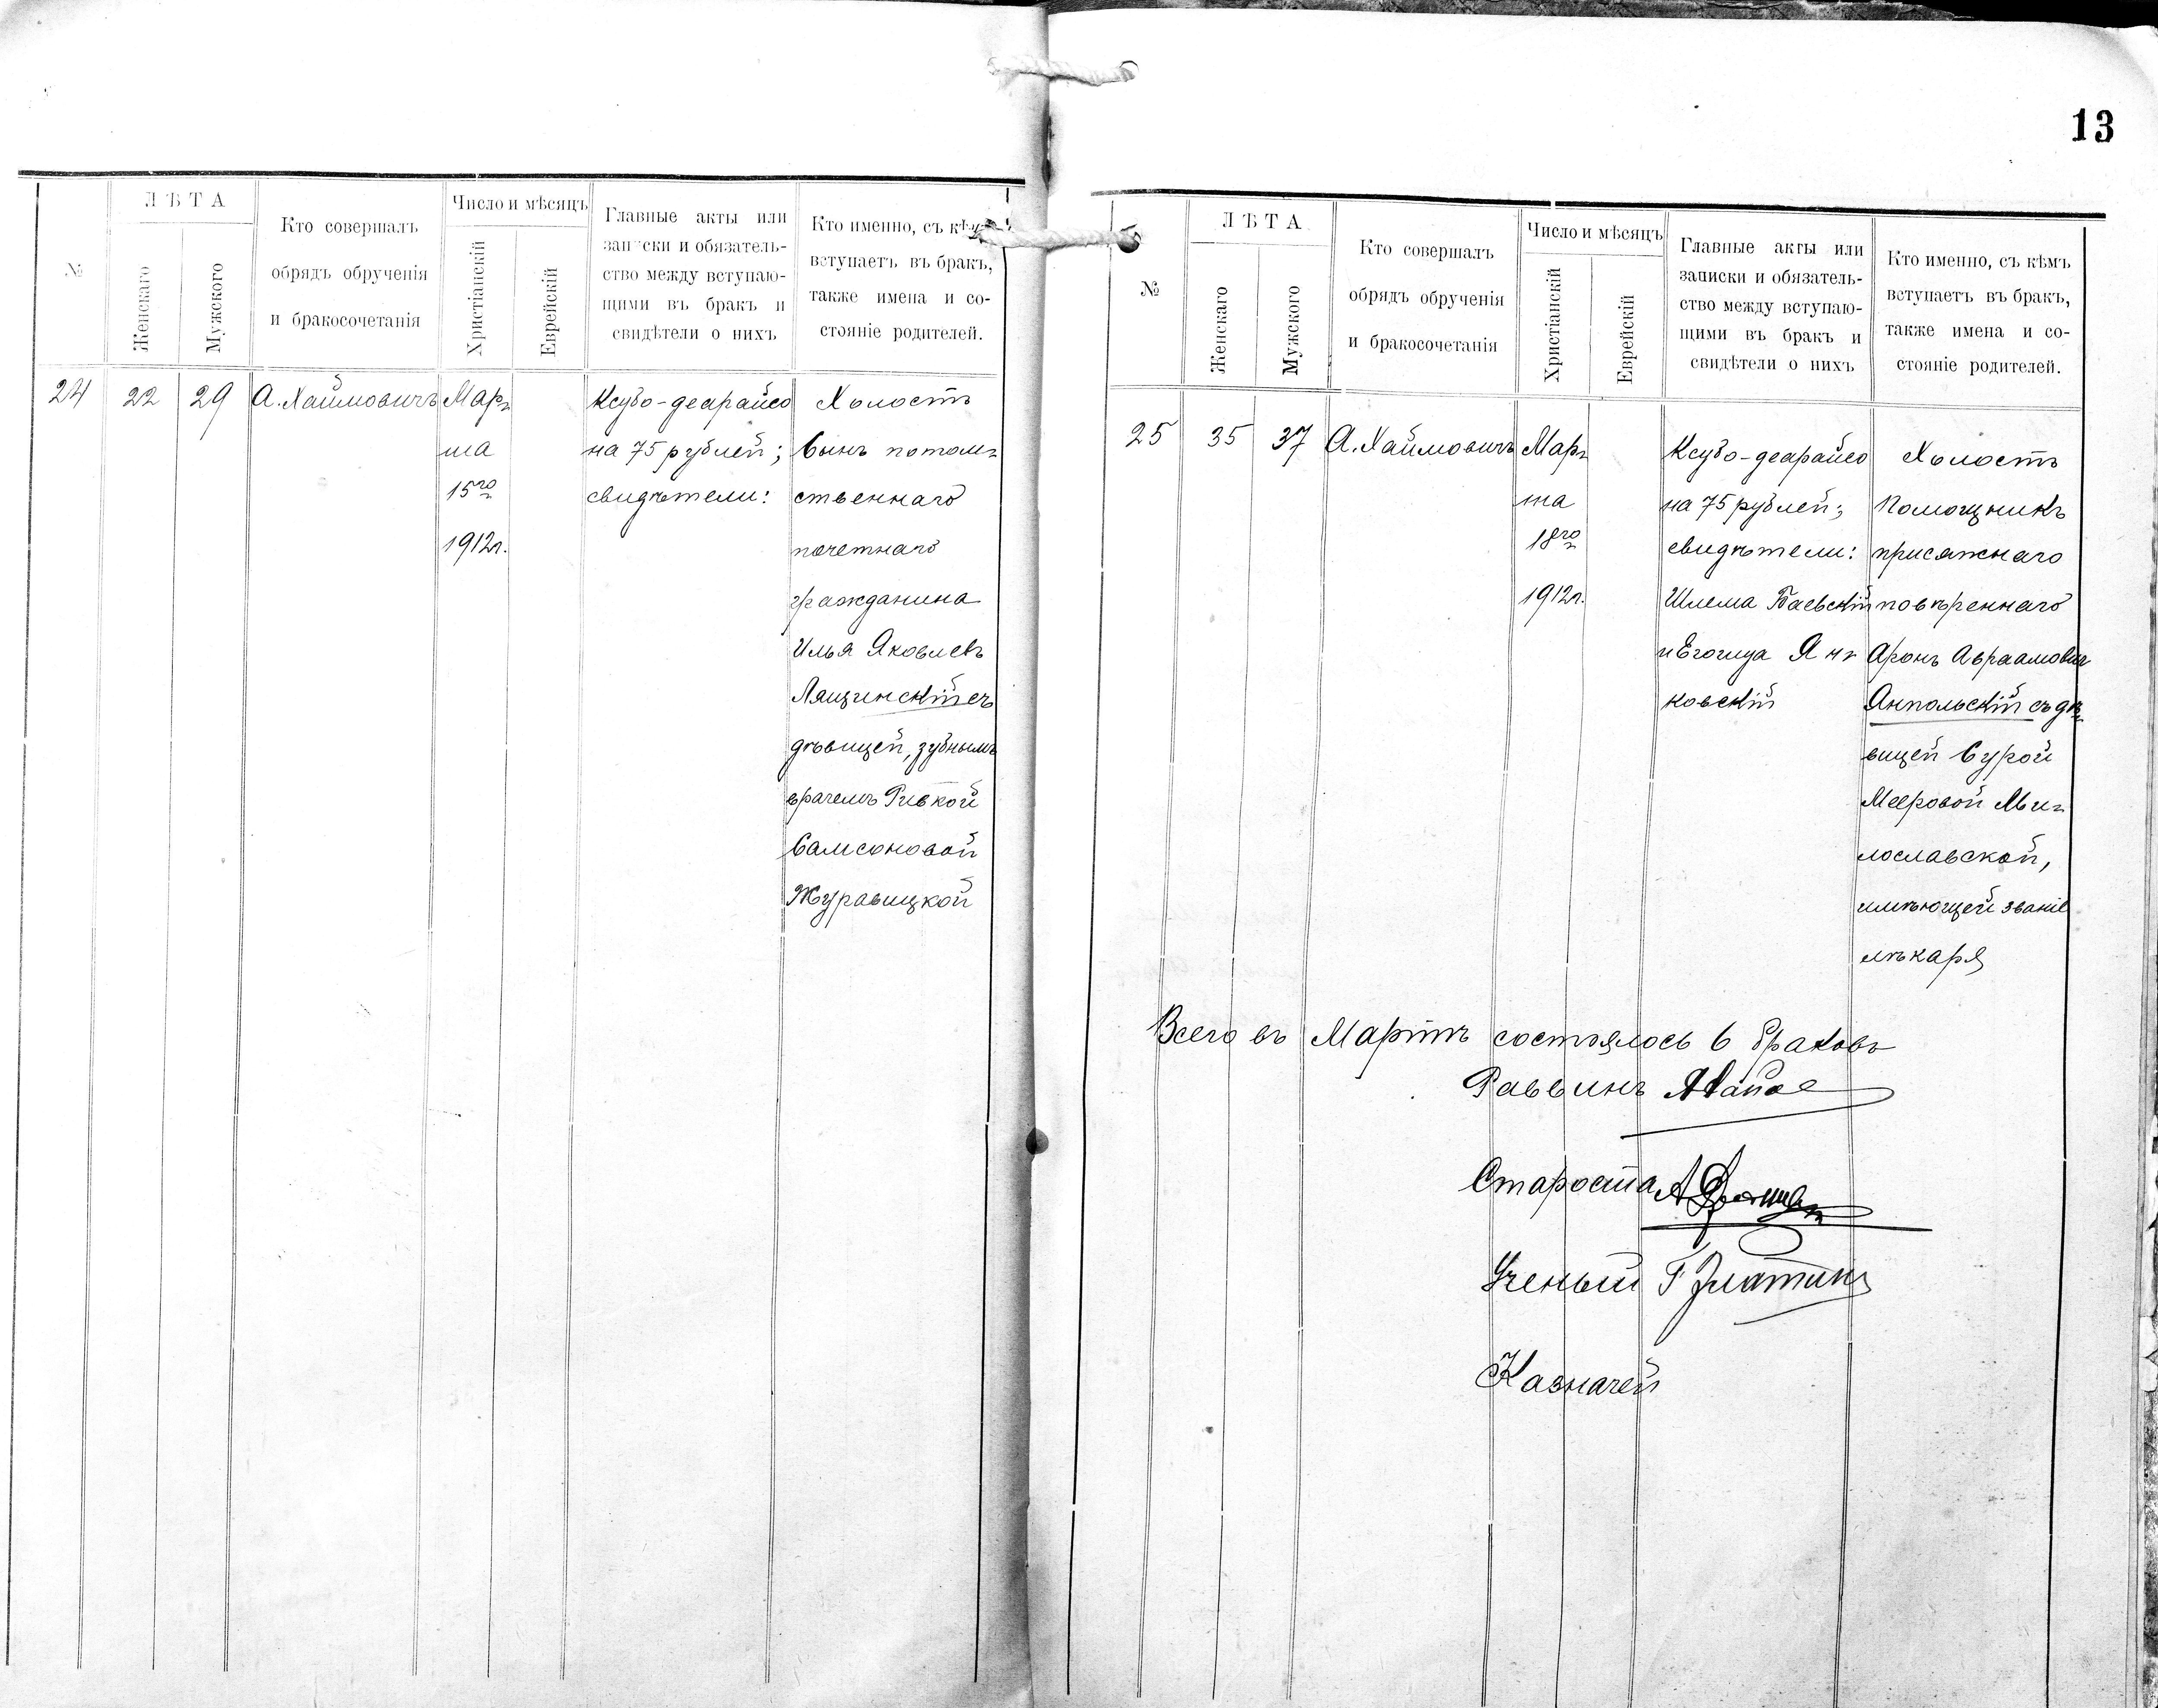 13
№
ЛѢТА
Женскаго
Мужского
Кто совершалъ
обрядъ обрученія
и бракосочетанія
Число и мѣсяцъ
Христіанскій
Еврейскій
Главные акты или
записки и обязатель-
ство между вступаю-
щими въ бракъ и
свидѣтели о нихъ
Кто именно, съ кѣмъ
вступаетъ въ бракъ,
также имена и со-
стояніе родителей.
24
22
29
А. Хаймовичъ
Мар-
та
15го
1912г.
Ксубо-деарайсо
на 75 рублей;
свидѣтели:
Холостъ
Сынъ потом-
ственнаго
почетнаго
гражданина
Илья Яковлевъ
Лящинскій съ
дѣвицей, зубнымъ
врачемъ Ривкой
Самсоновой
Журавицкой
№
ЛѢТА
Женскаго
Мужского
Кто совершалъ
обрядъ обрученія
и бракосочетанія
Число и мѣсяцъ
Христіанскій
Еврейскій
Главные акты или
записки и обязатель-
ство между вступаю-
щими въ бракъ и
свидѣтели о нихъ
Кто именно, съ кѣмъ
вступаетъ въ бракъ,
также имена и со-
стояніе родителей.
25
35
37
А. Хаймовичъ
Мар-
та
18го
1912г.
Ксубо-деарайсо
на 75 рублей;
свидѣтели:
Шлема Баевскій
и Егошуа Ян-
ковскій
Холостъ
Помощникъ
присяжнаго
повѣреннаго
Аронъ Авраамовъ
Анпольскій съ дѣ-
вицей Сурой
Мееровой Ми-
лославской,
имѣющей званіе
лѣкаря
Всего въ Мартѣ состоялось 6 браковъ
Раввинъ
Староста
Ученый Г Златинъ
Казначей